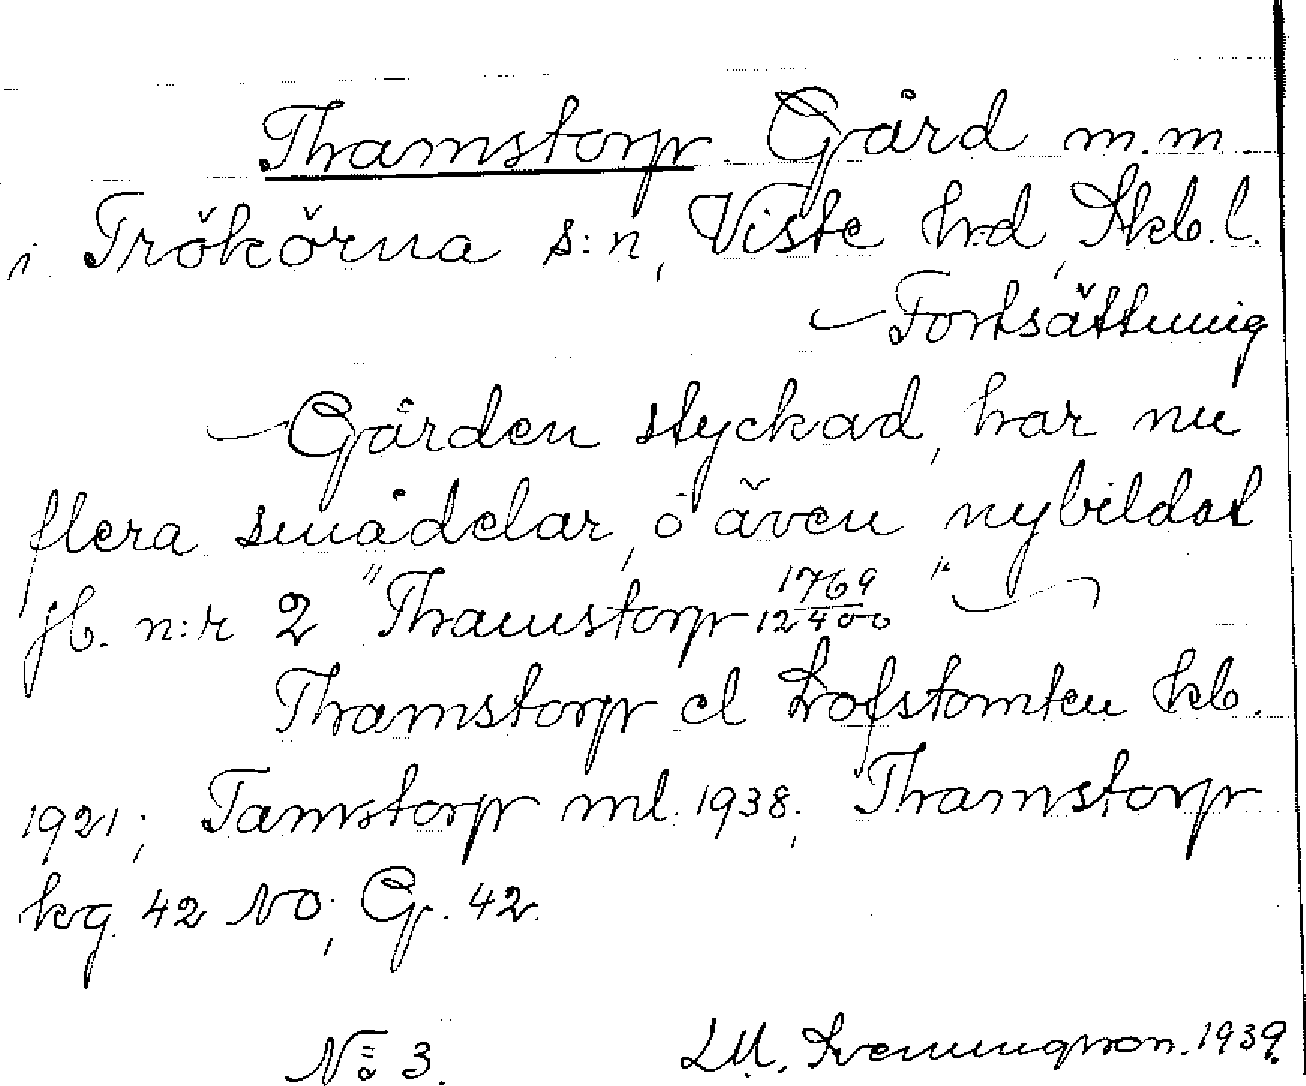 Thamstorp Gård m.m.
i Trökörna s:n, Viste hd, Skb. l.
– Fortsättning
– Gården styckad, har nu
flera smådelar, o även nybildat
jb. n:r 2 "Thamstorp 1769/12400" –
Thamstorp el Hofstomten kb.
1921; Tamstorp ml. 1938; Thamstorp
kg. 42 NO; Gp. 42.
No 3. LM. Svenungsson. 1939.